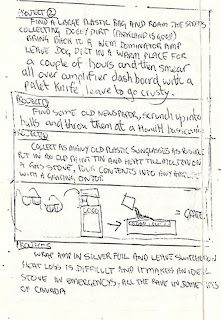 PROJECT 2
FIND A LARGE PLASTIC BAG AND ROAM THE STREETS
COLLECTING DOGGY DIRT (PARKLAND IS GOOD)
BRING BACK TO A NEW DOMINATOR AMP
LEAVE DOG DIRT IN A WARM PLACE FOR
A couple of hours and then smear
all over amplifier dashboard with a
palet knife leave to go crusty.
PROJECT 3
FIND SOME old NEWSPAPER, scrunch up into
balls and throw them at a
PROJECT 4
COLLECT AS MANY OLD PLASTIC SUNGLASSES AS POSSIBLE
PUT IN AN OLD PAINT TIN AND HEAT TILL MOLTEN ON
A GAS STOVE, POUR CONTENTS INTO ANY AMPLIFIER
WITH A
WRAP AMP IN SILVER FOIL AND LEAVE SWITCHED ON
HEAT LOSS IS DIFFICULT AND IT MAKES AN IDEAL
STOVE IN EMERGENCYS. ALL THE RAVE IN SOME
OF CANADA